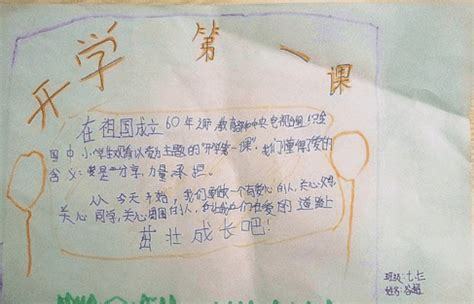 开学第一课
在祖国成立60年之际 教育部和中央电视台
国中小学生观看以爱为主题的“开学第一课”,我们懂得了爱的
含义:爱是分享,力量 承担。
从今天开始,我们要做一个有爱心的人,关心父母
关心同学,关心周围的人,爱的道路
茁壮成长吧!
班级:七
姓名:谷